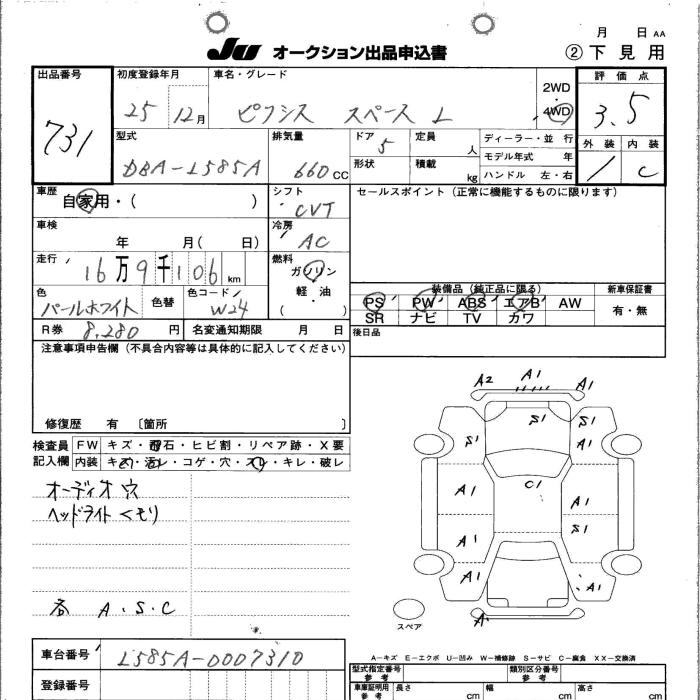 月 日 AA
JU オークション出品申込書 ② 下見用
出品番号 初度登録年月 車名・グレード 2WD 評価点
731 25 12月 ピクシス スペース L 4WD 3.5
型式 排気量 ドア 定員 人 ディーラー・並行 外装 内装
DBA-L585A 660cc 5 モデル年式 年 1 C
形状 積載 kg ハンドル 左・右
車歴 シフト セールスポイント（正常に機能するものに限ります）
自家用・（ ） CVT
車検 冷房
年 月（ 日） AC
走行 燃料
16万9千106km ガソリン
軽・油
（ ）
色 色替 色コード
パールホワイト W24
装備品（純正品に限る） 新車保証書
PS PW ABS エアB AW 有・無
SR ナビ TV カワ
R券 8,280 円 名変通知期限 月 日 後日品
注意事項申告欄（不具合内容等は具体的に記入してください）
修復歴 有 〔箇所 〕
検査員 FW キズ・飛石・ヒビ割・リペア跡・X要
記入欄 内装 キズ・汚レ・コゲ・穴・スレ・キレ・破レ
オーディオ穴
ヘッドライトくもり
A.S.C
A2 A1 A1
S1 S1 S1 A1
A1 C1 A1
A1 S1
A1 A1
A
スペア
A—キズ E—エクボ U—凹み W—補修跡 S—サビ C—腐食 XX—交換済
車台番号 L585A-0007310
登録番号
型式指定番号 参考 類別区分番号 参考
車庫証明用 参考 長さ cm 幅 cm 高さ cm